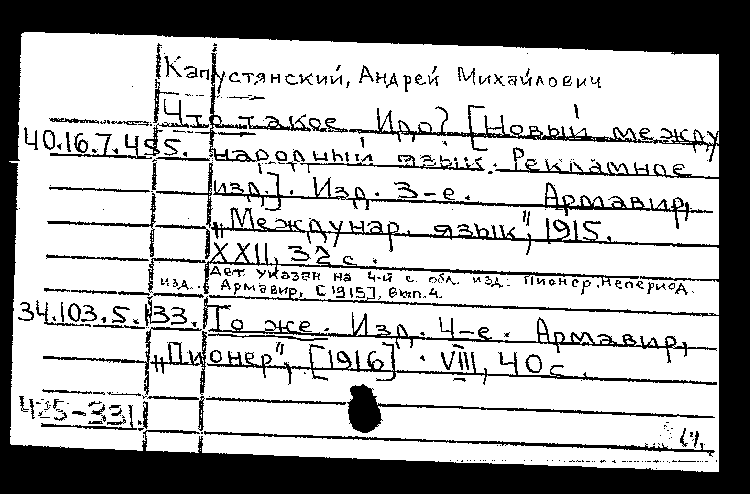 Капустянский, Андрей Михайлович
Что такое Идо? [Новый между
40.16.7.495. народный язык. Рекламное
изд.]. Изд. 3-е. Армавир,
„Междунар. язык", 1915.
XXII, 32 с.
Авт. указан на 4-й с. обл. изд: Пионер. Непериод.
изд. Армавир, [1915], вып. 4.
34.103.5.133. То же. Изд. 4-е. Армавир,
„Пионер", [1916]. VIII, 40 с.
425-331.